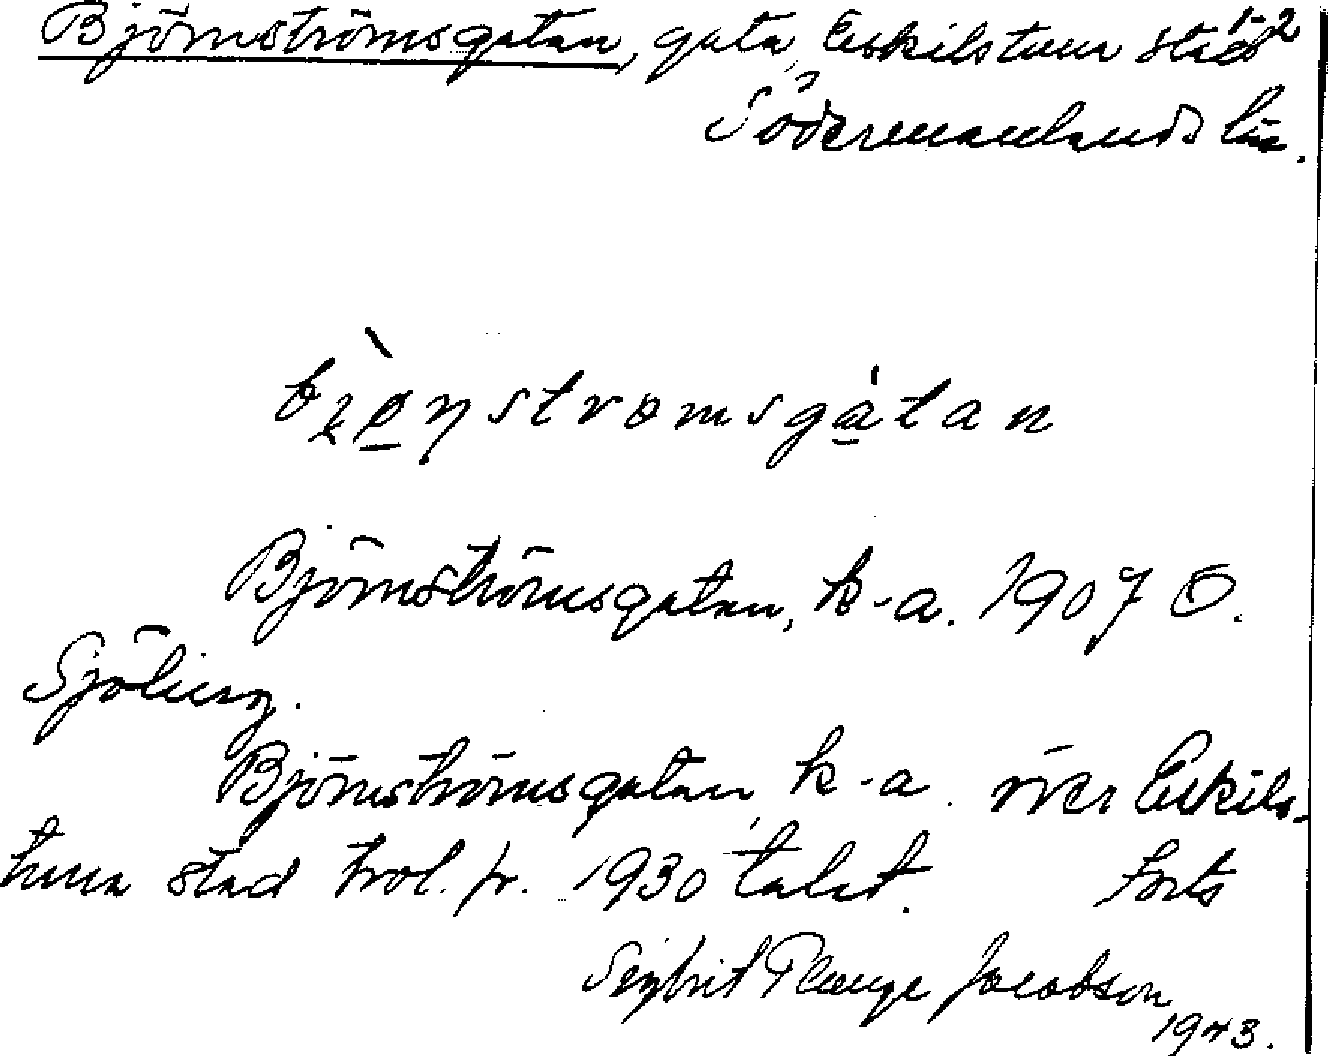 Björnströmsgatan, gata, Eskilstuna stad 1-2
Södermanlands län.
bɪø̀ηstrømsgátan
Björnströmsgatan, k-a. 1907 O.
Sjöberg.
Björnströmsgatan, k-a. över Eskils-
tuna stad trol. fr. 1930 talet. Forts
Sigbrit Plænge Jacobson
1943.